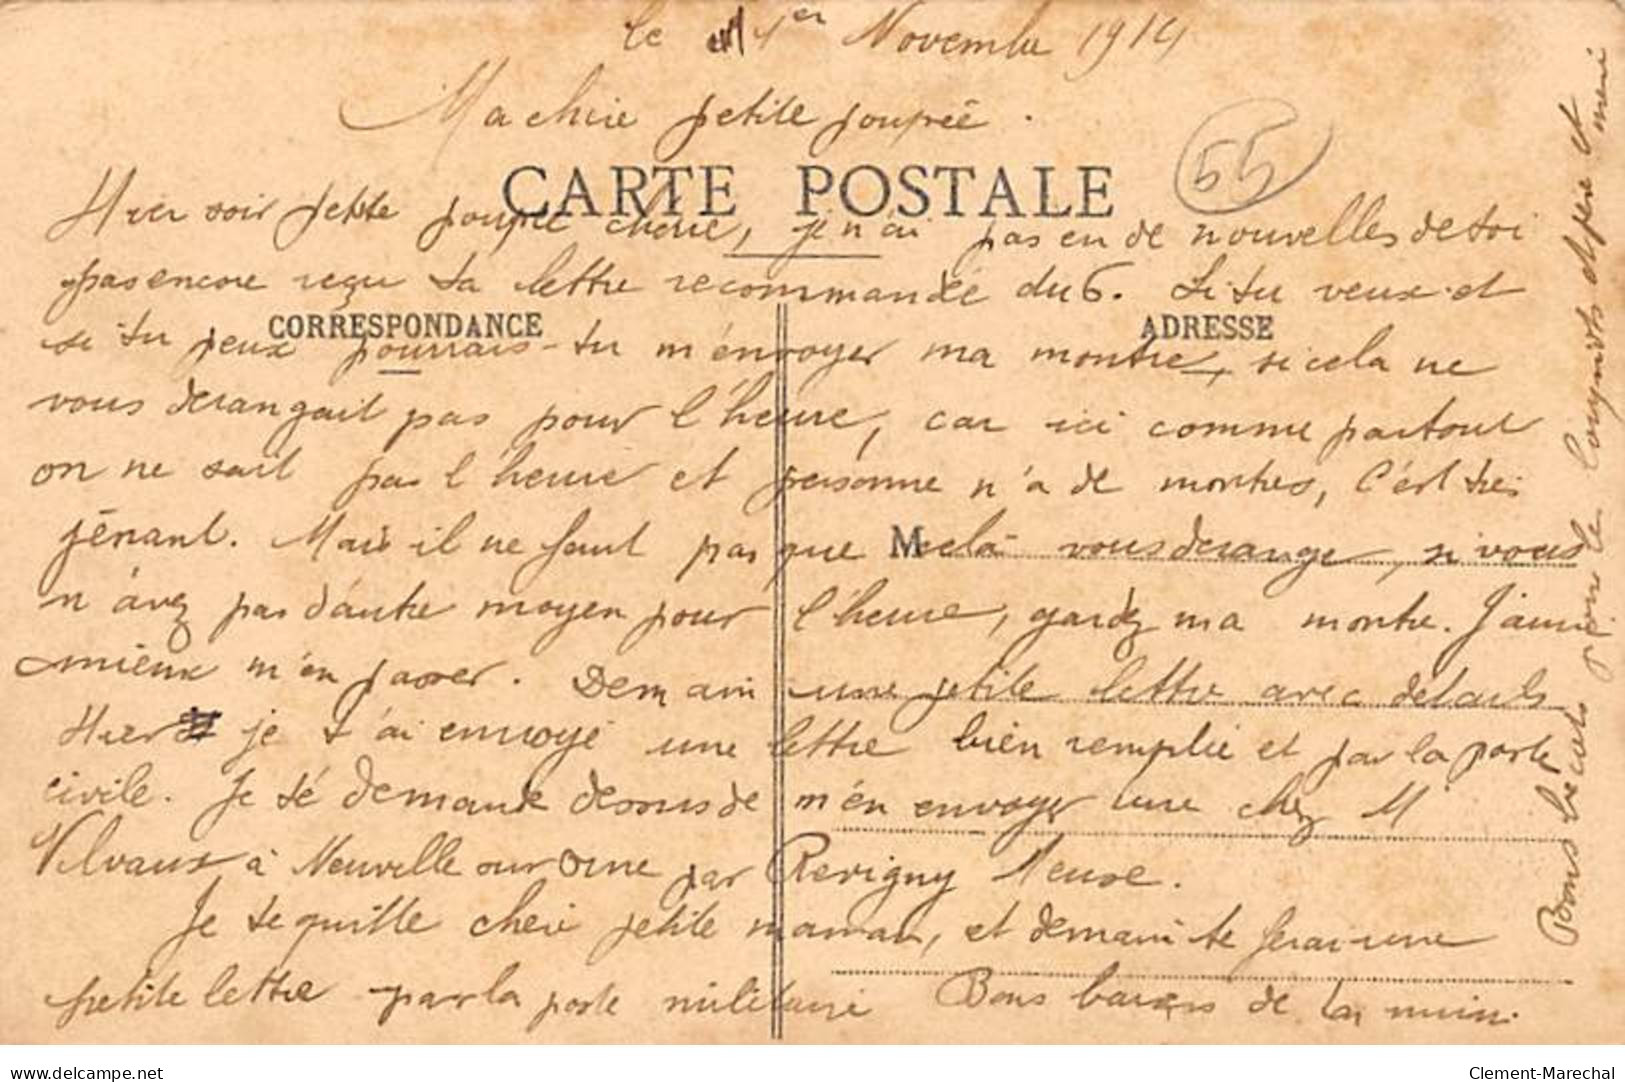 le 1er Novembre 1914
Ma chère petite poupée.
CARTE POSTALE
55
Hier soir petite poupée chérie, je n'ai pas eu de nouvelles de toi
pas encore reçu ta lettre recommandée du 6. Si tu veux et
CORRESPONDANCE
ADRESSE
si tu peux pourrais-tu m'envoyer ma montre, si cela ne
vous dérangait pas pour l'heure, car ici comme partout
on ne sait pas l'heure et personne n'a de montres, c'est très
gênant. Mais il ne faut pas que cela vous dérange, si vous
M
n'avez pas d'autre moyen pour l'heure, gardez ma montre. J'aime
mieux m'en passer. Demain une petite lettre avec détails
Hier je t'ai envoyé une lettre bien remplie et par la poste
civile. Je te demande dessus de m'en envoyer une chez M
à Neuville sur Orne par Revigny Meuse.
Je te quitte chère petite maman, et demain te ferai une
petite lettre par la poste militaire Bons baisers de
Bons bécots pour les et père et
mère
delcampe.net
Clement-Marechal